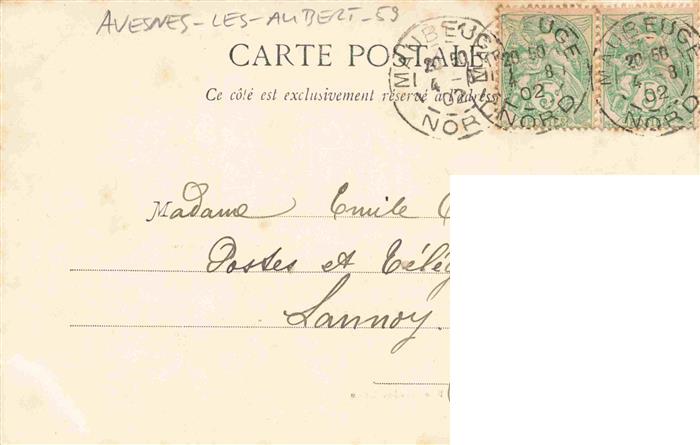 AVESNES-LES-AUBERT-59
CARTE POSTALE
Ce côté est exclusivement réservé à l'adresse
MAUBEUGE
20 50
4 - 8
02
NORD
MAUBEUGE
20 50
4 - 8
02
NORD
MAUBEUGE
20 50
4 - 8
02
NORD
Madame Emile
Postes et Télég
Lannoy.